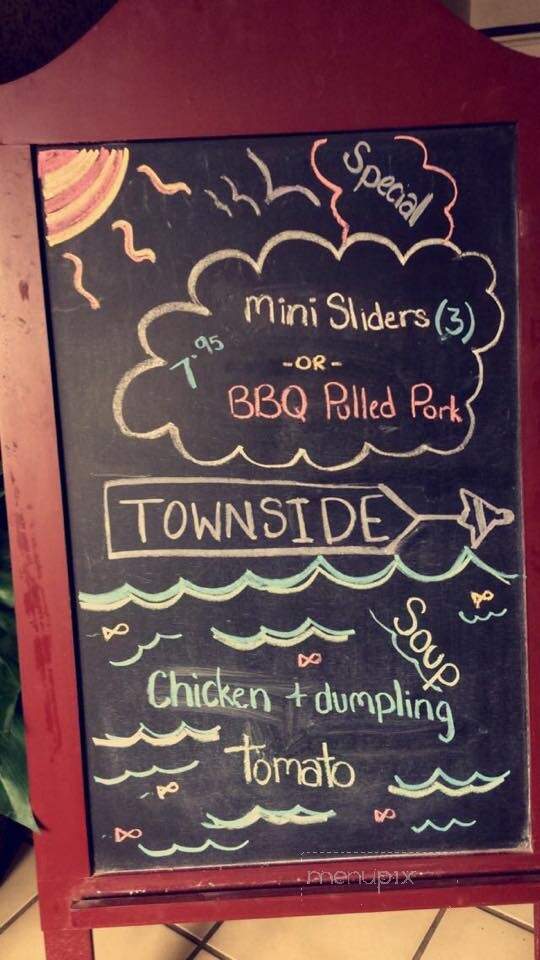 Special
Mini Sliders (3)
7.95
-OR-
BBQ Pulled Pork
TOWNSIDE
Soup
Chicken + dumpling
tomato
menupix